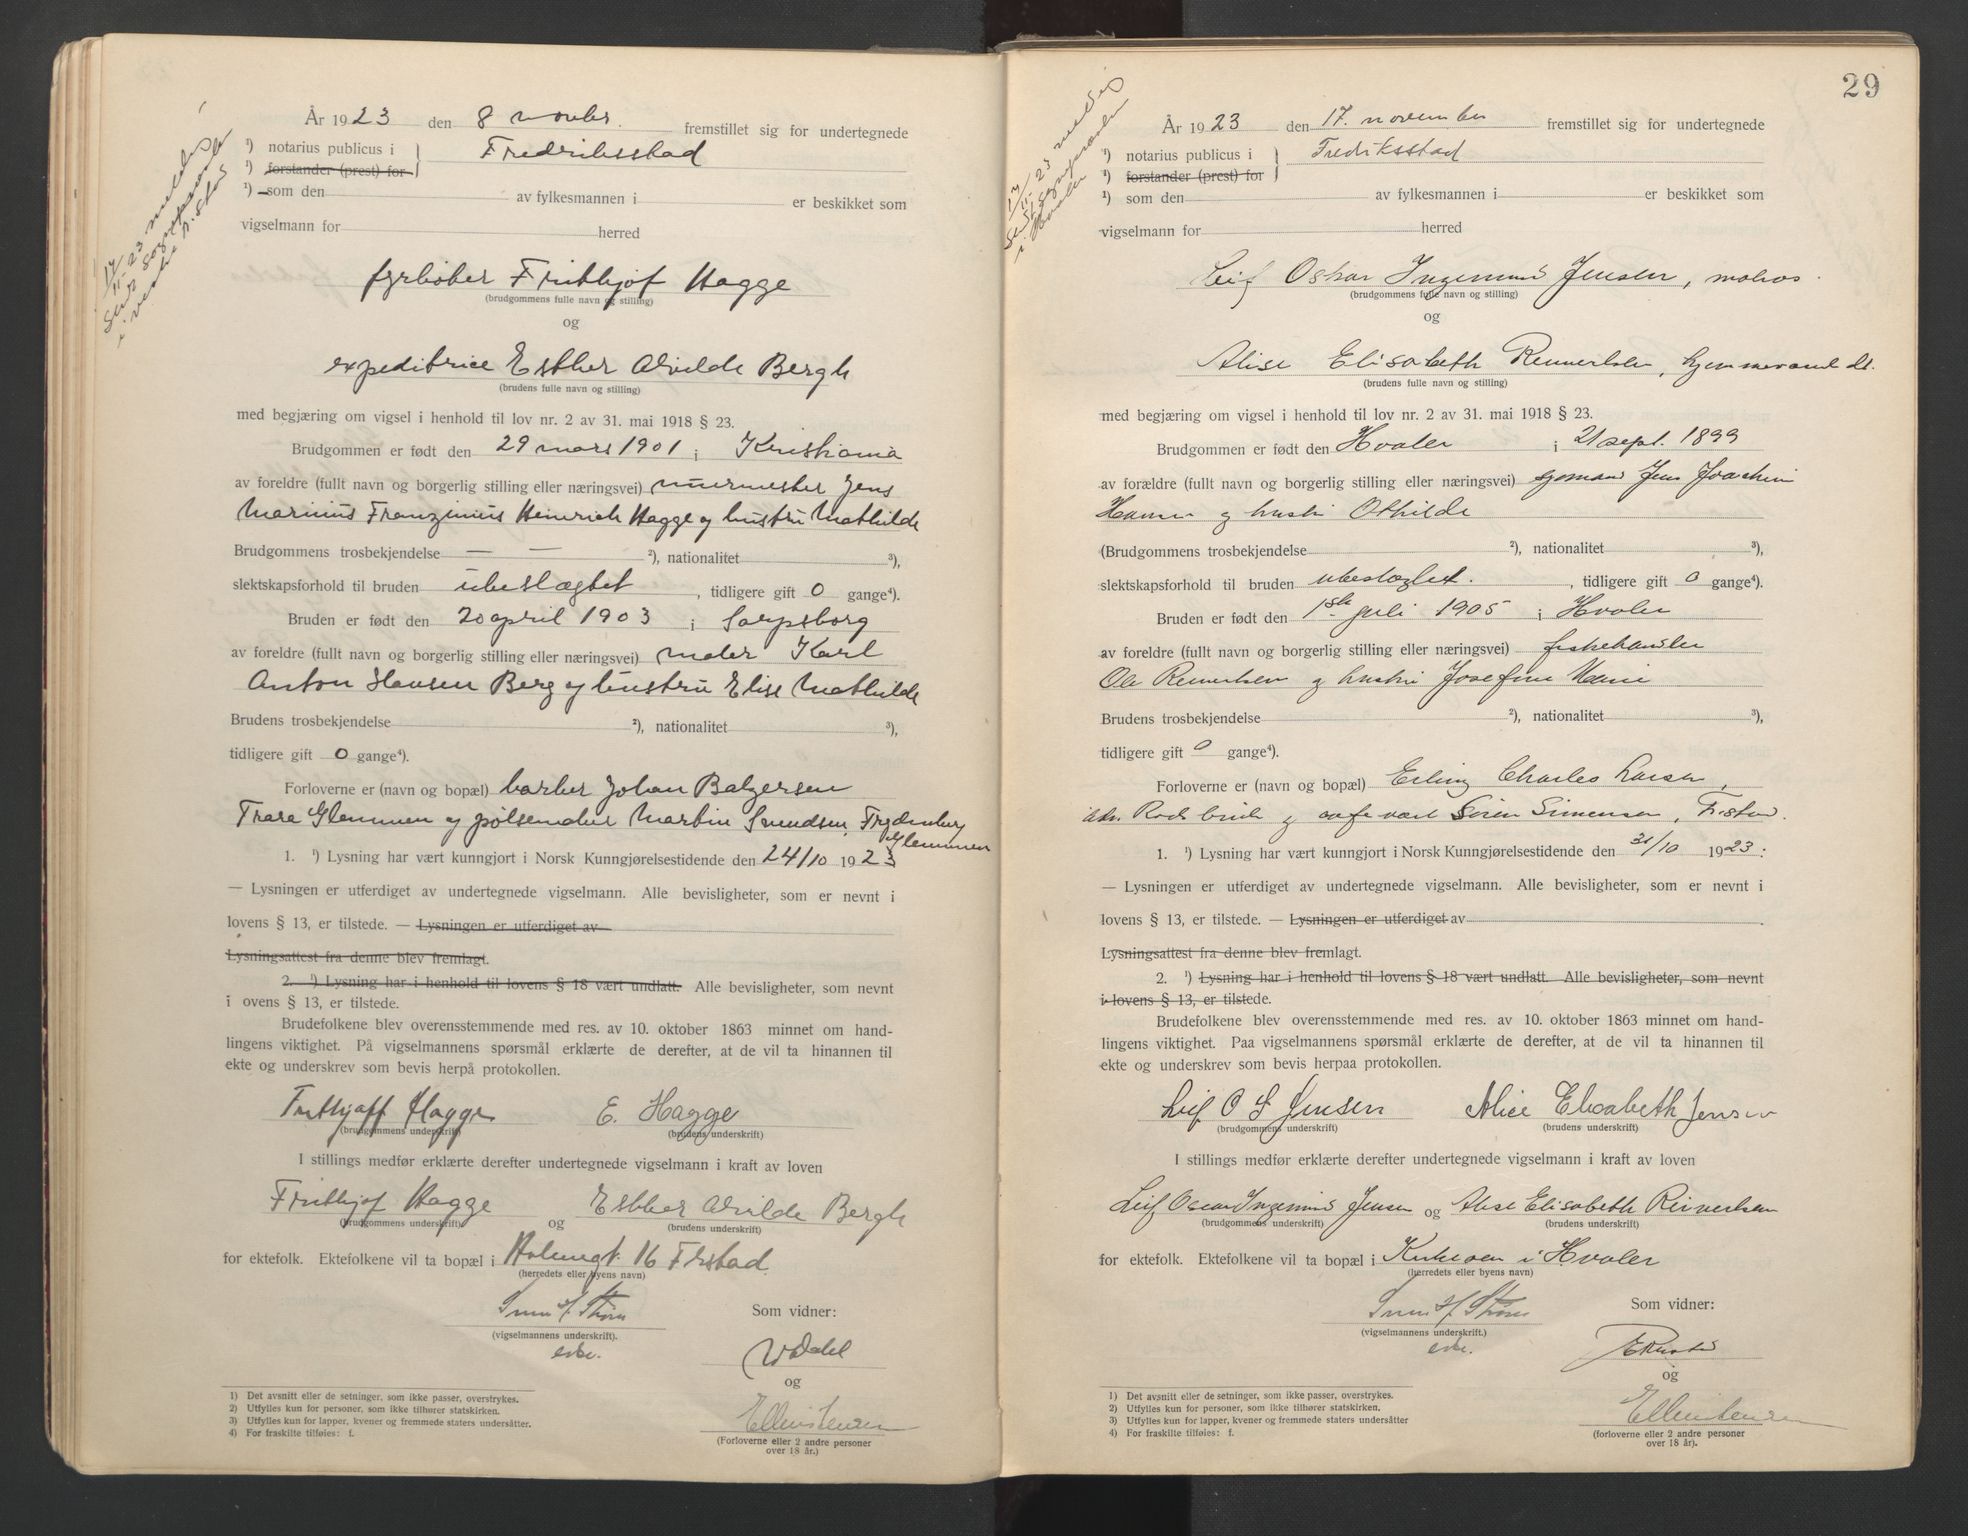 17/11-23 meldt
Sogneprest
i
År 1923 den 8 novbr. fremstillet sig for undertegnede
¹) notarius publicus i } Fredriksstad
¹) forstander (prest) for
¹) som den av fylkesmannen i er beskikket som
vigselmann for herred
fyrbøter Frithjof Hagge
(brudgommens fulle navn og stilling)
og
expeditrice Esther Alvilde Bergh
(brudens fulle navn og stilling)
med begjæring om vigsel i henhold til lov nr. 2 av 31. mai 1918 § 23.
Brudgommen er født den 29 mars 1901 i Kristiania
av foreldre (fullt navn og borgerlig stilling eller næringsvei) murmester Jens
Marinius Franzinius Heinrich Hagge og hustru Mathilde
Brudgommens trosbekjendelse — — ²), nationalitet ³),
slektskapsforhold til bruden ubeslægtet, tidligere gift 0 gange⁴).
Bruden er født den 20 april 1903 i Sarpsborg
av foreldre (fullt navn og borgerlig stilling eller næringsvei) maler Karl
Anton Hansen Berg og hustru Elise Mathilde
Brudens trosbekjendelse ²), nationalitet ³),
tidligere gift 0 gange⁴).
Forloverne er (navn og bopæl) barber Johan Balzersen
Trara Glemmen og pølsemaker Martin Svendsen, Frydenberg
Glemmen
1. ¹) Lysning har vært kunngjort i Norsk Kunngjørelsestidende den 24/10 1923
— Lysningen er utferdiget av undertegnede vigselmann. Alle bevisligheter, som er nevnt i
lovens § 13, er tilstede. — Lysningen er utferdiget av
Lysningsattest fra denne blev fremlagt.
2. ¹) Lysning har i henhold til lovens § 18 vært undlatt. Alle bevisligheter, som nevnt
i ovens § 13, er tilstede.
Brudefolkene blev overensstemmende med res. av 10. oktober 1863 minnet om hand-
lingens viktighet. På vigselmannens spørsmål erklærte de derefter, at de vil ta hinannen til
ekte og underskrev som bevis herpå protokollen.
Frithjoff Hagge E. Hagge
(brudgommens underskrift) (brudens underskrift)
I stillings medfør erklærte derefter undertegnede vigselmann i kraft av loven
Frithjof Hagge og Esther Alvilde Bergh
(brudgommens underskrift) (brudens underskrift)
for ektefolk. Ektefolkene vil ta bopæl i Holmegt. 16 Frstad.
(herredets eller byens navn)
Som vidner:
(vigselmannens underskrift).
og
Ellen Jensen
(Forloverne eller 2 andre personer
over 18 år.)
1) Det avsnitt eller de setninger, som ikke passer, overstrykes.
2) Utfylles kun for personer, som ikke tilhører statskirken.
3) Utfylles kun for lapper, kvener og fremmede staters undersåtter.
4) For fraskilte tilføies: f.
29
17/11-23 meldt
Sognepresten
i Hvaler
År 1923 den 17. november fremstillet sig for undertegnede
¹) notarius publicus i } Fredriksstad
¹) forstander (prest) for
¹) som den av fylkesmannen i er beskikket som
vigselmann for herred
Leif Oskar Ingemund Jensen, matros.
(brudgommens fulle navn og stilling)
og
Alise Elisabeth Reinertsen, hjemmeværende dt.
(brudens fulle navn og stilling)
med begjæring om vigsel i henhold til lov nr. 2 av 31. mai 1918 § 23.
Brudgommen er født den Hvaler i 21 sept. 1899
av forældre (fullt navn og borgerlig stilling eller næringsvei) sjømand Jens Joachim
Hansen og hustru Othilde
(Brudgommens trosbekjendelse ²), nationalitet ³),
slektskapsforhold til bruden ubeslægtet., tidligere gift 0 gange⁴).
Bruden er født den 1ste juli 1905 i Hvaler
av foreldre (fullt navn og borgerlig stilling eller næringsvei) fiskehandler
Ole Reinertsen og hustru Josefine Marie
Brudens trosbekjendelse ²), nationalitet ³),
tidligere gift 0 gange⁴).
Forloverne er (navn og bopæl) Erling Charles Larsen,
og Søren Simensen, Fr.stad.
1. ¹) Lysning har vært kunngjort i Norsk Kunngjørelsestidende den 31/10 1923:
— Lysningen er utferdiget av undertegnede vigselmann. Alle bevisligheter, som er nevnt i
lovens § 13, er tilstede. — Lysningen er utferdiget av
Lysningsattest fra denne blev fremlagt.
2. ¹) Lysning har i henhold til lovens § 18 vært undlatt. Alle bevisligheter, som nevnt
i lovens § 13, er tilstede.
Brudefolkene blev overensstemmende med res. av 10. oktober 1863 minnet om hand-
lingens viktighet. Paa vigselmannens spørsmål erklærte de derefter, at de vil ta hinannen til
ekte og underskrev som bevis herpaa protokollen.
Leif O I Jensen Alice Elisabeth Jensen
(brudgommens underskrift) (brudens underskrift)
I stillings medfør erklærte derefter undertegnede vigselmann i kraft av loven
Leif Oscar Ingemund Jensen og Alise Elisabeth Reinertsen
(brudgommens underskrift) (brudens underskrift)
for ektefolk. Ektefolkene vil ta bopæl i Kirkeøen i Hvaler
(herredets eller byens navn)
Som vidner:
(vigselmannens underskrift.)
og
Ellen Jensen
(forloverne eller 2 andre personer
over 18 år).
1) Det avsnitt eller de setninger, som ikke passer, overstrykes.
2) Utfylles kun for personer, som ikke tilhører statskirken.
3) Utfylles kun for lapper, kvener og fremmede staters undersåtter
4) For fraskilte tilføies: f.